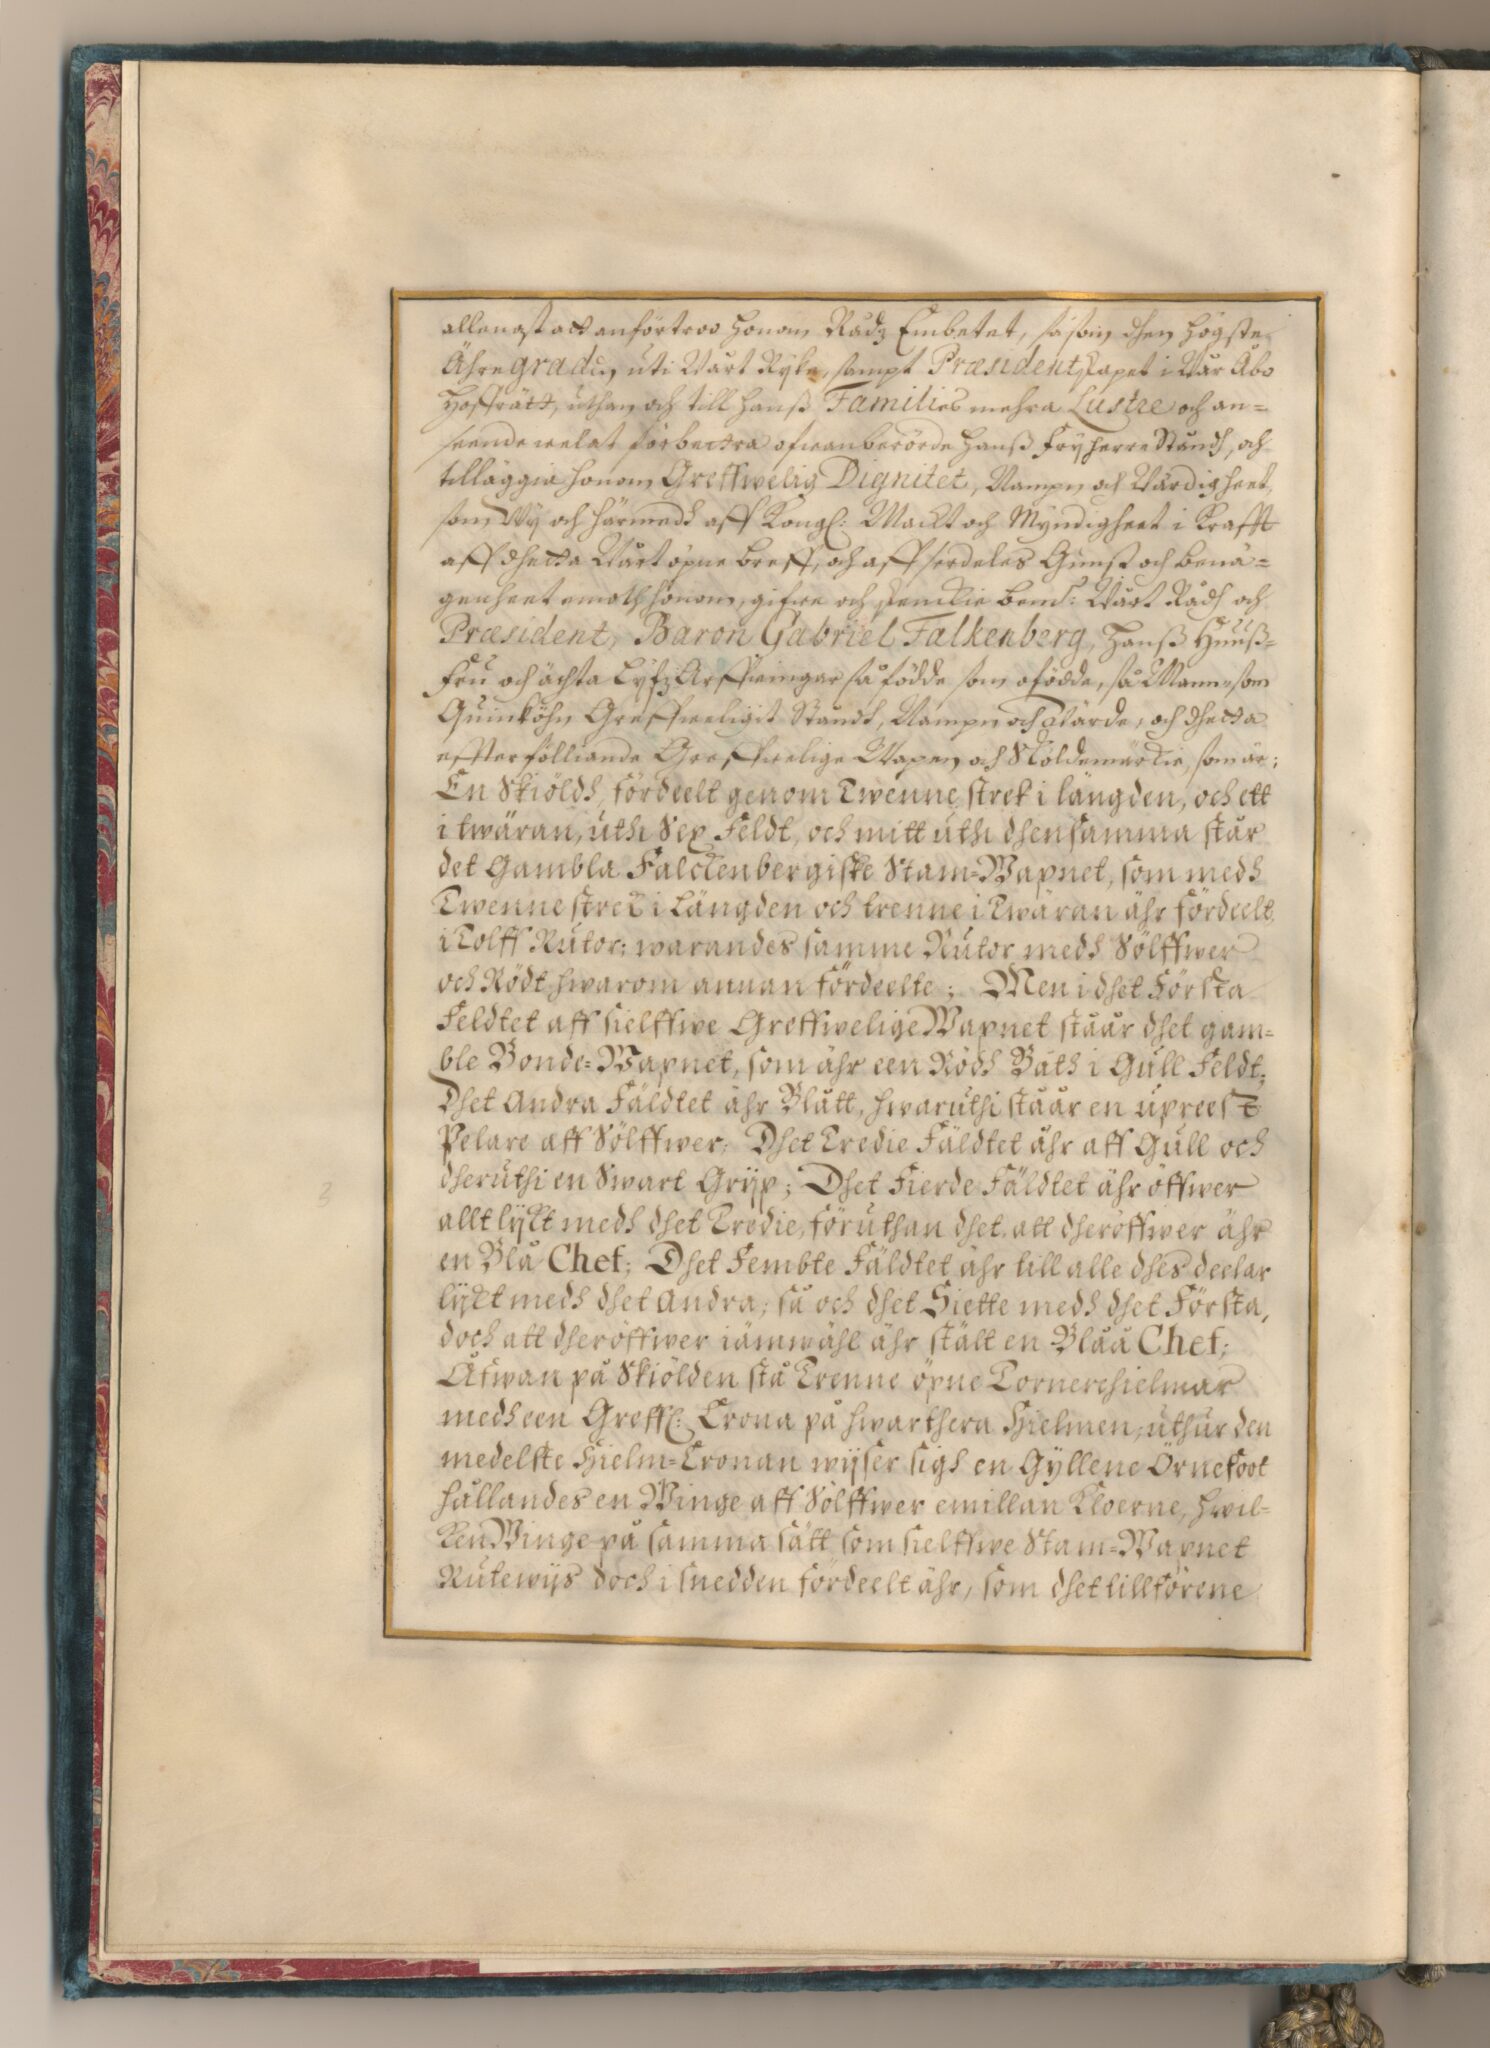 allenast att anförtroo honom Rådz Embetet, såsom dhen högste
Ähre graden uti Vårt Ryke, sampt Præsidentskapet i Vår Åbo
Hoffrätt, uthan och till hanß Families mehra Lustre och an=
seende welat förbettra ofwanberörde hanß FryherreStåndh, och
tilläggia honom Greffwelig Dignitet, Nampn och Värdigheet,
som Wij och härmedh aff Kongl: Mackt och Myndigheet i Krafft
aff dhetta Vårt öpne breff, och aff serdeles Gunst och benä=
genheet emoth honom, gifwe och skenckie bem:te Vårt Rådh och
Præsident, Baron Gabriel Falkenberg, hanß Huuß=
Fru och ächta Lyfz Arffwingar så födde som ofödde, så Manne som
Quinköhn Greffweligit Ståndh, Nampn och Värde, och dhetta
effterfölliande Greffwelige Wapen och Sköldemärckie, som är;
En Skiöldh, fördeelt genom Twenne strek i längden, och ett
i twäran, uthi Sex Feldt, och mitt uthi dhensamma står
det Gambla Falckenbergiske Stam=Wapnet, som medh
Twenne strek i Längden och trenne i Twäran ähr fördeelt
i Tolff Rutor; warandes samme Rutor medh Sölffwer
och Rödt hwarom annan fördeelte; Men i dhet Första
Feldtet aff sielffwe Greffwelige Wapnet ståår dhet gam=
ble Bonde=Wapnet, som ähr een Rödh Båth i Gull Feldt;
Dhet Andra Fäldtet ähr Blått, hwaruthi stäår en uprees t
Pelare aff Sölffwer; Dhet Tredie Fäldtet ähr aff Gull och
dheruthi en Swart Grijp; Dhet Fierde Fäldtet ähr öffwer
allt lijkt medh dhet Tredie, föruthan dhet, att dheröffwer ähr
en Blå Chef; Dhet Fembte Fäldtet ähr till alle dhes deelar
lijkt medh dhet Andra; så och dhet Siette medh dhet Första,
doch att dheröffwer iämwähl ähr stält en Blåå Chef;
Åfwan på Skiölden stå Trenne öpne Tornerehielmar
medh een Greffl: Crona på hwarthera Hielmen, uthur den
medelste Hielm=Cronan wijser sigh en Gyllene Örnefoot
hållandes en Winge aff Sölffwer emillan Kloerne, hwil=
ken Winge på samma sätt som sielffwe Stam=Wapnet
Rutewijs doch i snedden fördeelt ähr, som dhet tillförene
3